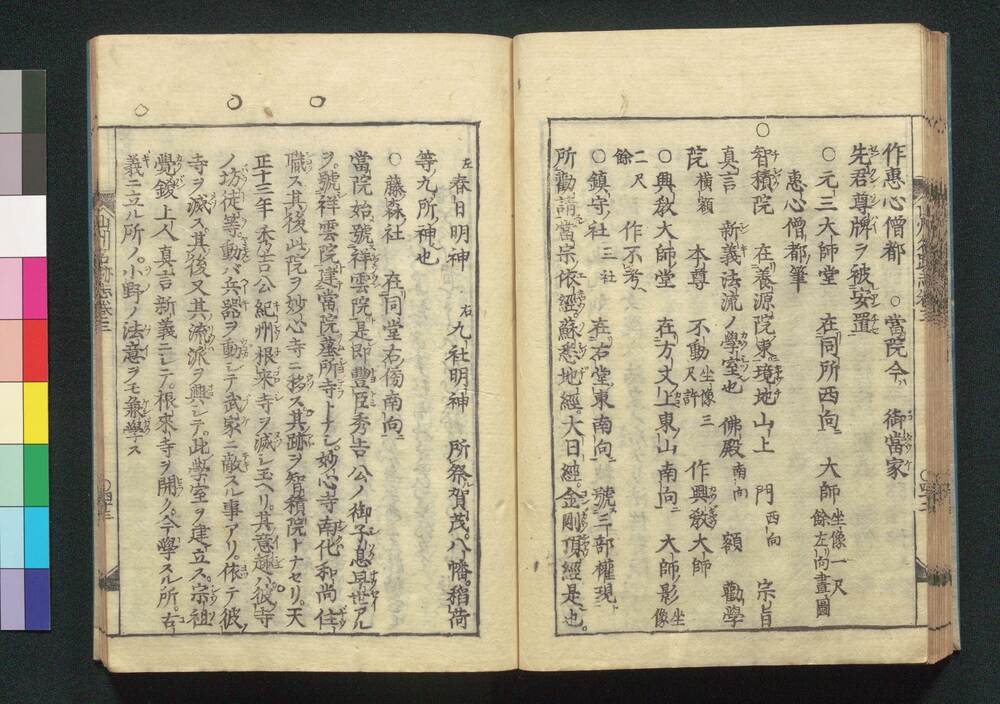 作惠心僧都 ○當院今ハ 御當家
先君尊牌ヲ被安置
○元三大師堂 在同所西向ニ 大師 坐像一尺餘左ノ向畫圖
惠心僧都筆
○智積院 在養源院ノ東ノ境地山上 門 西向 宗旨
真言 新義法流ノ學室也 佛殿 南向 額 勸學
院 橫額 本尊 不動 坐像三尺許 作興敎大師
○興敎大師堂 在方丈ノ上東山南向ニ 大師影 坐像
二尺餘 作不考ヘ
○鎮守ノ社 三社 在右堂ノ東南向ニ 號三部權現ト
所勸請當宗依經蘇悉地經。大日經。金剛頂經是也。
左 春日明神 右 九社明神 所祭賀茂。八幡。稲荷
等ノ九所ノ神也
○藤森社 在同堂右傍南向ニ
當院始號祥雲院是即豐臣秀吉公ノ御子息早世アル
ヲ。號祥雲院建當院墓所寺トナシ。妙心寺南化和尚住
職ス其後此院ヲ妙心寺ニ移ス其跡ヲ智積院トナセリ。天
正十三年秀吉公紀州根来寺ヲ滅シ玉ヘリ。其意趣ハ彼寺
ノ坊徒等動バ兵器ヲ動シテ武家ニ敵スル事アリ。依テ彼
寺ヲ滅ス其後又其流派ヲ興シテ。此學室ヲ建立ス。宗祖
覺鑁上人真言新義ニシテ。根來寺ヲ開ク。今學スル所。右
義ニ立ル所ノ。小野ノ法意ヲモ兼學ス